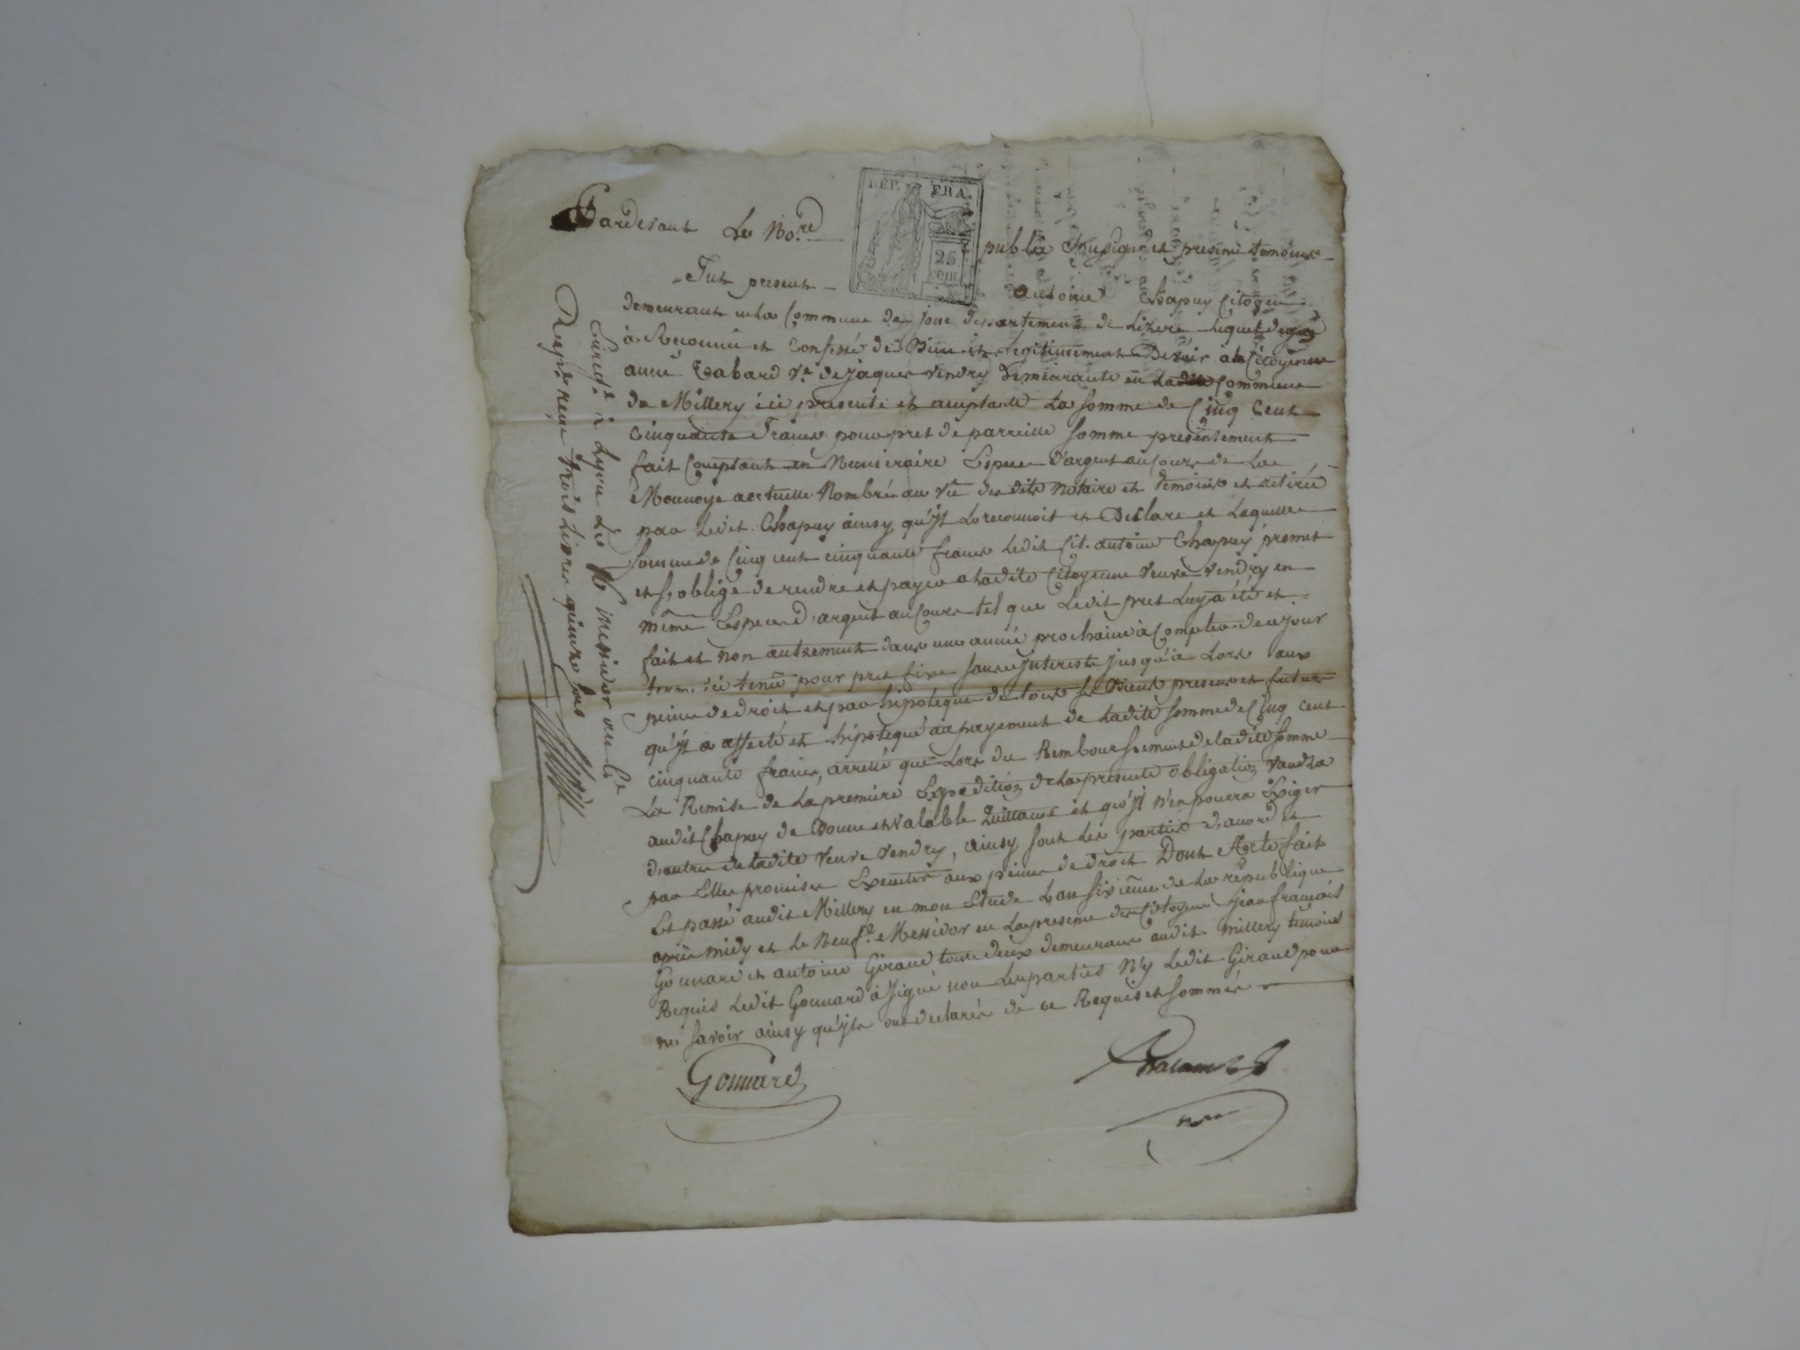 Pardevant Le No.re publiq Soussigné et presens temoins
REP. FRA.
25 cent.
Fut present antoine Chapuy Citoyen
demeurant en la Commune de departement de Lizere Lequel de gré
à Reconnu et Confessé de Bien et Legitimement Devoir à la Citoyenne
anne Tabard v.e de jaques vendry demeurante en Ladite Commune
de Millery ici presente et aceptante La somme de Cinq Cent
Cinquante francs pour pret de parreille somme presentement
fait Comptant en Numeraire Espece d'argent au Cours de La
Monnoye actuelle Nombrée au vû desdits Notaire et temoins et retirée
par Ledit Chapuy ainsy qu'yl Le reconnoit et Déclare et Laquelle
somme de Cinq cent cinquante francs Ledit Cit. antoine Chapuy promet
et s'oblige de rendre et payer a Ladite Citoyenne veuve vendry en
même Espece d'argent au Cours tel que Ledit pret Luy a été et
fait et non autrement dans une année prochaine à Compter de ce jour
terme ici tenu pour pret fixe sans jnterets jusqu'à Lors aux
peines de droit et par hipoteque de tous ses Biens presens et futurs
qu'yl a affecté et hipotequé au payement de Ladite somme de Cinq cent
cinquante francs, arretté que Lors du Remboursement de Ladite somme
La Remise de La premiere Expedition de La presente obligation vaudra
audit Chapuy de Bonne et valable Quittance et qu'yl n'en pourra Exiger
d'autre de Ladite veuve vendry, ainsy sont Les parties d'acord et
par Elles promis Executer aux peines de droit Dont Acte fait
Et passé audit Millery en mon Etude L'an sixième de La republique
après midy et Le Neuf Messidor en La presence des Citoyens jean françois
Gonnard et antoine Giraud tous deux demeurans audit millery temoins
Requis Ledit Gonnard à signé non Les parties N'y Ledit Giraud pour
ne savoir ainsy qu'yls ont declarés de ce Requis et sommés
Gonnard
n.re
Enreg.é à Lyon Le 16 messidor an 6.e
Reçu trois Livres quinze sous